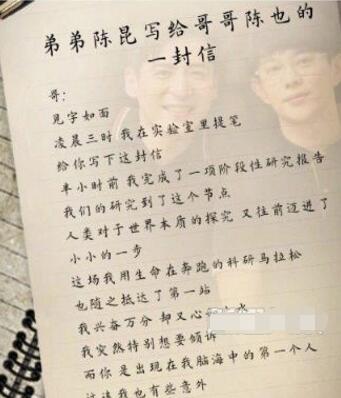 弟弟陈昆写给哥哥陈也的
一封信
哥：
见字如面
凌晨三时 我在实验室里提笔
给你写下这封信
半小时前 我完成了一项阶段性研究报告
我们的研究到了这个节点
人类对于世界本质的探究 又往前迈进了
小小的一步
这场我用生命在奔跑的科研马拉松
也随之抵达了第一站
我兴奋万分 却又心
我突然特别想要倾诉
而你是出现在我脑海中的第一个人
这让我也有些意外